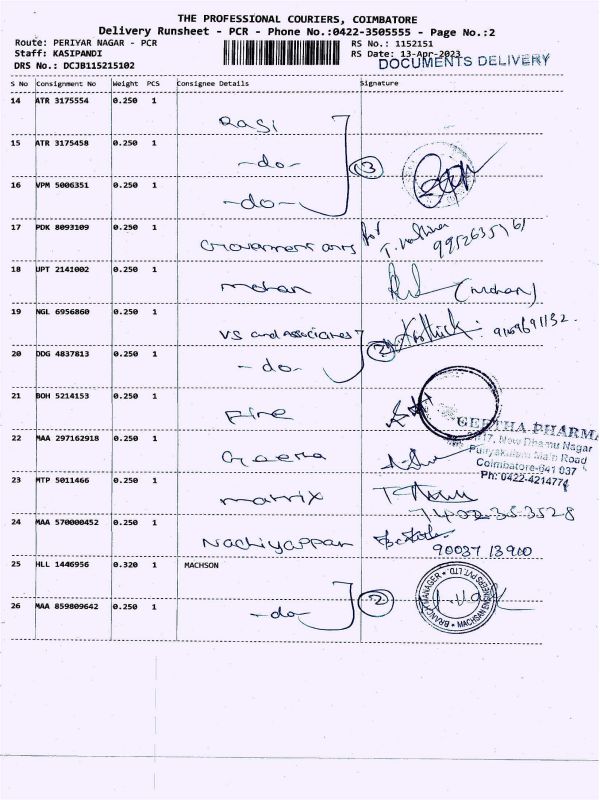 THE PROFESSIONAL COURIERS, COIMBATORE
Delivery Runsheet - PCR - Phone No.:0422-3505555 - Page No.:2
Route: PERIYAR NAGAR - PCR
RS No.: 1152151
Staff: KASIPANDI
RS Date: 13-Apr-2023
DOCUMENTS DELIVERY
DRS No.: DCJB115215102
S No Consignment No Weight PCS Consignee Details Signature
14 ATR 3175554 0.250 1
Rasi
15 ATR 3175458 0.250 1
-do-
3
16 VPM 5006351 0.250 1
-do-
17 PDK 8093109 0.250 1
Government arts
for
18 UPT 2141002 0.250 1
mohan
(mohan)
19 NGL 6956860 0.250 1
VS and associates
20 DDG 4837813 0.250 1
-do-
2
21 BOH 5214153 0.250 1
Fire
GEETHA PHARMA
22 MAA 297162918 0.250 1
Geetha
New Dhamu Nagar
Puliyakulam Main Road
Coimbatore-641 037
Ph: 0422-4214774
23 MTP 5011466 0.250 1
matrix
24 MAA 570000452 0.250 1
Nachiyappan
90037 13900
25 HLL 1446956 0.320 1 MACHSON
26 MAA 859809642 0.250 1
-do-
2
BRANCH MANAGER